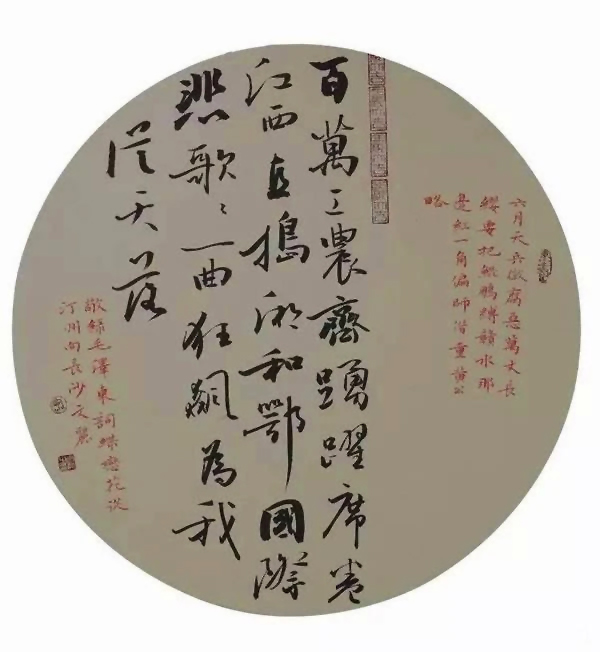 六月天兵徵腐惡萬丈長
纓要把鯤鵬縛贛水那
邊紅一角偏師借重黃公
略
百萬工農齊踴躍席卷
江西直搗湘和鄂國際
悲歌〻一曲狂飆為我
從天落
敬錄毛澤東詞蝶戀花從
汀州向長沙文麗